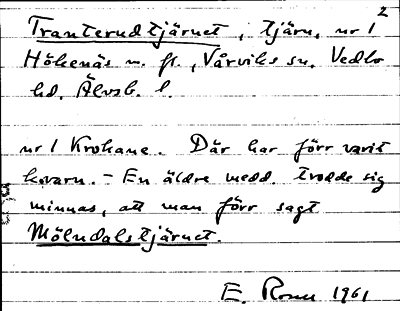 Tranterudtjärnet, tjärn, nr 1 2
Hökenäs m. fl., Vårviks sn. Vedbo
hd. Älvsb. l.
nr 1 Krokane. Där har förr varit
kvarn. - En äldre medd. trodde sig
minnas, att man förr sagt
Mölndalstjärnet.
E. Rosen 1961